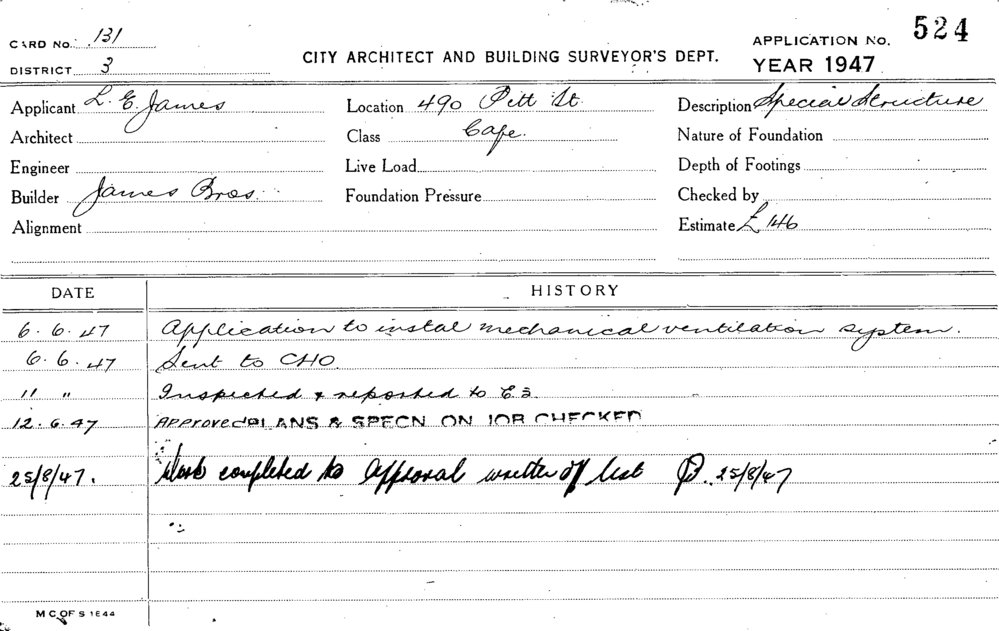 CARD No. 131
DISTRICT 3
CITY ARCHITECT AND BUILDING SURVEYOR'S DEPT.
APPLICATION No. 524
YEAR 1947
Applicant L. E. James Location 490 Pitt St. Description Special Structure
Architect Class Cafe. Nature of Foundation
Engineer Live Load Depth of Footings
Builder James Bros. Foundation Pressure Checked by
Alignment Estimate £146
DATE HISTORY
6.6.47 Application to instal mechanical ventilation system.
6.6.47 Sent to CHO.
" " Inspected & reported to
12.6.47 Approved PLANS & SPECN ON JOB CHECKED
25/8/47. Work completed to approval written off list 25/8/47
M C OF S 1644